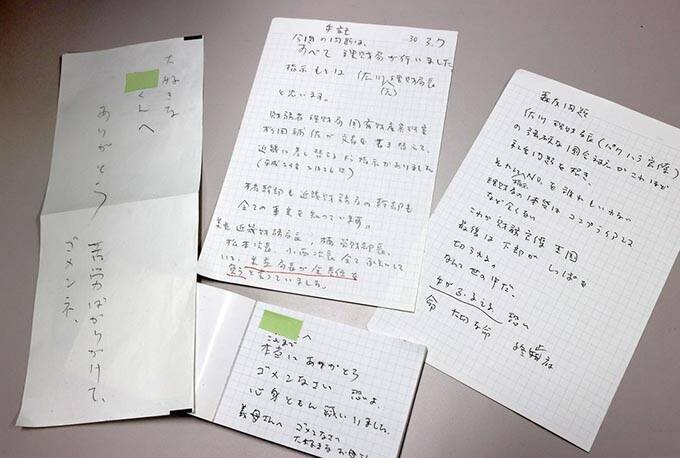 大好きな
くんへ
ありがとう
苦労ばかりかけて、
ゴメンネ、
手記
30. 3. 7
今回の問題は、
すべて 理財局が行いました
指示もとは (佐川(元)理財局長
と思います。
財務省 理財局 国有財産審理室
補佐が 文書を書き替えて、
近畿に差し替えるよう指示がありました
(平成29年 2月26日)
本省幹部も 近畿財務局の幹部も
全ての事実を 知っています。
美並 近畿財務局長, 楠 管財部長,
松本 次長, 小西 次長 全て承知して
いて、美並 局長が 全責任を
負うと言っていました。
へ
これまで
本当に ありがとう
ゴメンなさい 恐いよ、
心身ともに 滅いりました
義母さんへ ゴメンなさい
大好きな お母さん
森友問題
佐川 理財局長 (パワハラ官僚)
の強硬な国会対応がこれほど
社会問題を招き、
それにNOを誰れもいわない
これが 財務官僚 王国
最後は 下部が しっぽを
切られる。
なんて世の中だ、
手がふるえる、恐い
命 大切な命 終止符